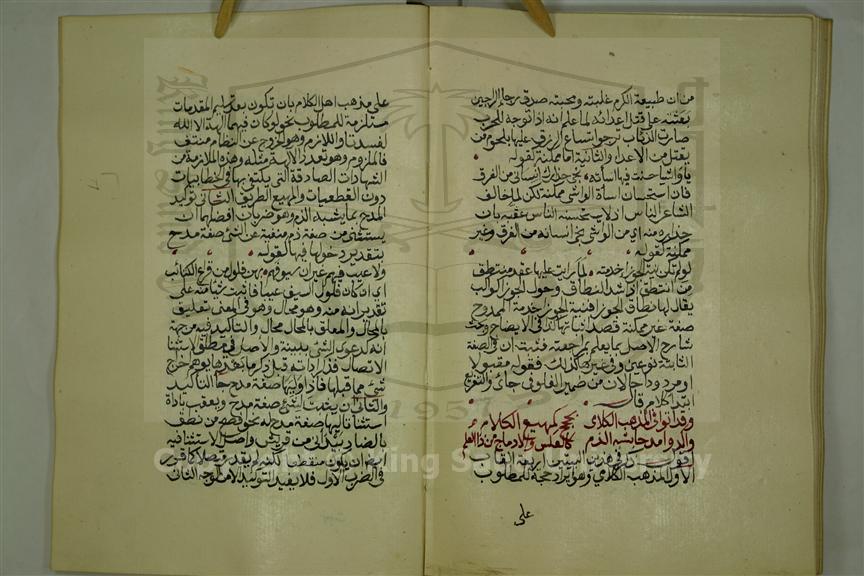 من ان طبيعة الكرم غلبته ومحبته صدق رجا الراجين
بعثته على قتل اعدائه لما علم انه اذا توجه للحرب
صارت الذئاب ترجو اتساع الرزق عليها بلحوم من
يقتل من الاعداء والثانية اما ممكنة كقوله
يا واشيا حسنت فينا اساته نجى حذارك انسانى من الغرق
فان استحسان اساة الواشي ممكنة لكن لما خالف
الشاعر الناس اذ لا يستحسنه الناس عقبه بان
حذاره منه اي من الواشي نجى انسانه من الغرق وغير
ممكنة كقوله
لو لم تكن نية الجوزا خدمته لما رايت عليها عقد منتطق
من انتطق اي شد النطاق وحول الجوزا كواكب
يقال لها نطاق الجوزا فنية الجوزا خدمة الممدوح
صفة غير ممكنة قصد اثباتها كذا في الايضاح وبحث
شارح الاصل بما يعلم بمراجعته فثبت ان في الصفة
الثابتة نوعين وفي غيرها كذلك فقوله مقبولا
او مردودا حالان من ضمير الغلو في جائ والتفريع
ابتدا كلام قال
وقد اتوا في المذهب الكلامي بحجج كمهيع الكلام
واكدوا مدحا بشبه الذم كالعكس والادماج من ذا العلم
اقول ذكر في هذين البيتين اربعة القاب
الاول المذهب الكلامي وهو ايراد حجة للمطلوب
على
على مذهب اهل الكلام بان تكون بعد تسليم المقدمات
مستلزمة للمطلوب نحو لو كان فيهما الهة الا الله
لفسدتا واللازم وهو الخروج عن النظام منتف
فالملزوم وهو تعدد الالهة مثله وهذه الملازمة من
الشهادات الصادقة التي يكتفى بها في الخطابيات
دون القطعيات والمهيع الطريق الثاني توكيد
المدح بما يشبه الذم وهو ضربان افضلهما ان
يستثنى من صفة ذم منفية عن الشئ صفة مدح
بتقدير دخولها فيها كقوله
ولا عيب فيهم غير ان سيوفهم بهن فلول من قراع الكتائب
اي ان كان فلول السيف عيبا فاثبت شيا منه على
تقدير انه منه وهو محال وهو في المعنى تعليق
بالمحال والمعلق بالمحال محال والتاكيد فيه من جهة
انه كدعوى الشئ ببينة والاصل في مطلق الاستثنا
الاتصال فذكر اداته قبل ذكر ما بعدها يوهم خروج
شئ مما قبلها فاذا وليها صفة مدح جا التاكيد
والثاني ان يثبت لشئ صفة مدح ويعقب باداة
استثنا يليها صفة مدح له نحو انا افصح من نطق
بالضاد بيد اني من قريش واصل الاستثنا فيه
ايضا ان يكون منقطعا لكنه لم يقدر متصلا كما قدر
في الضرب الاول فلا يفيد التوكيد الا من الوجه الثاني